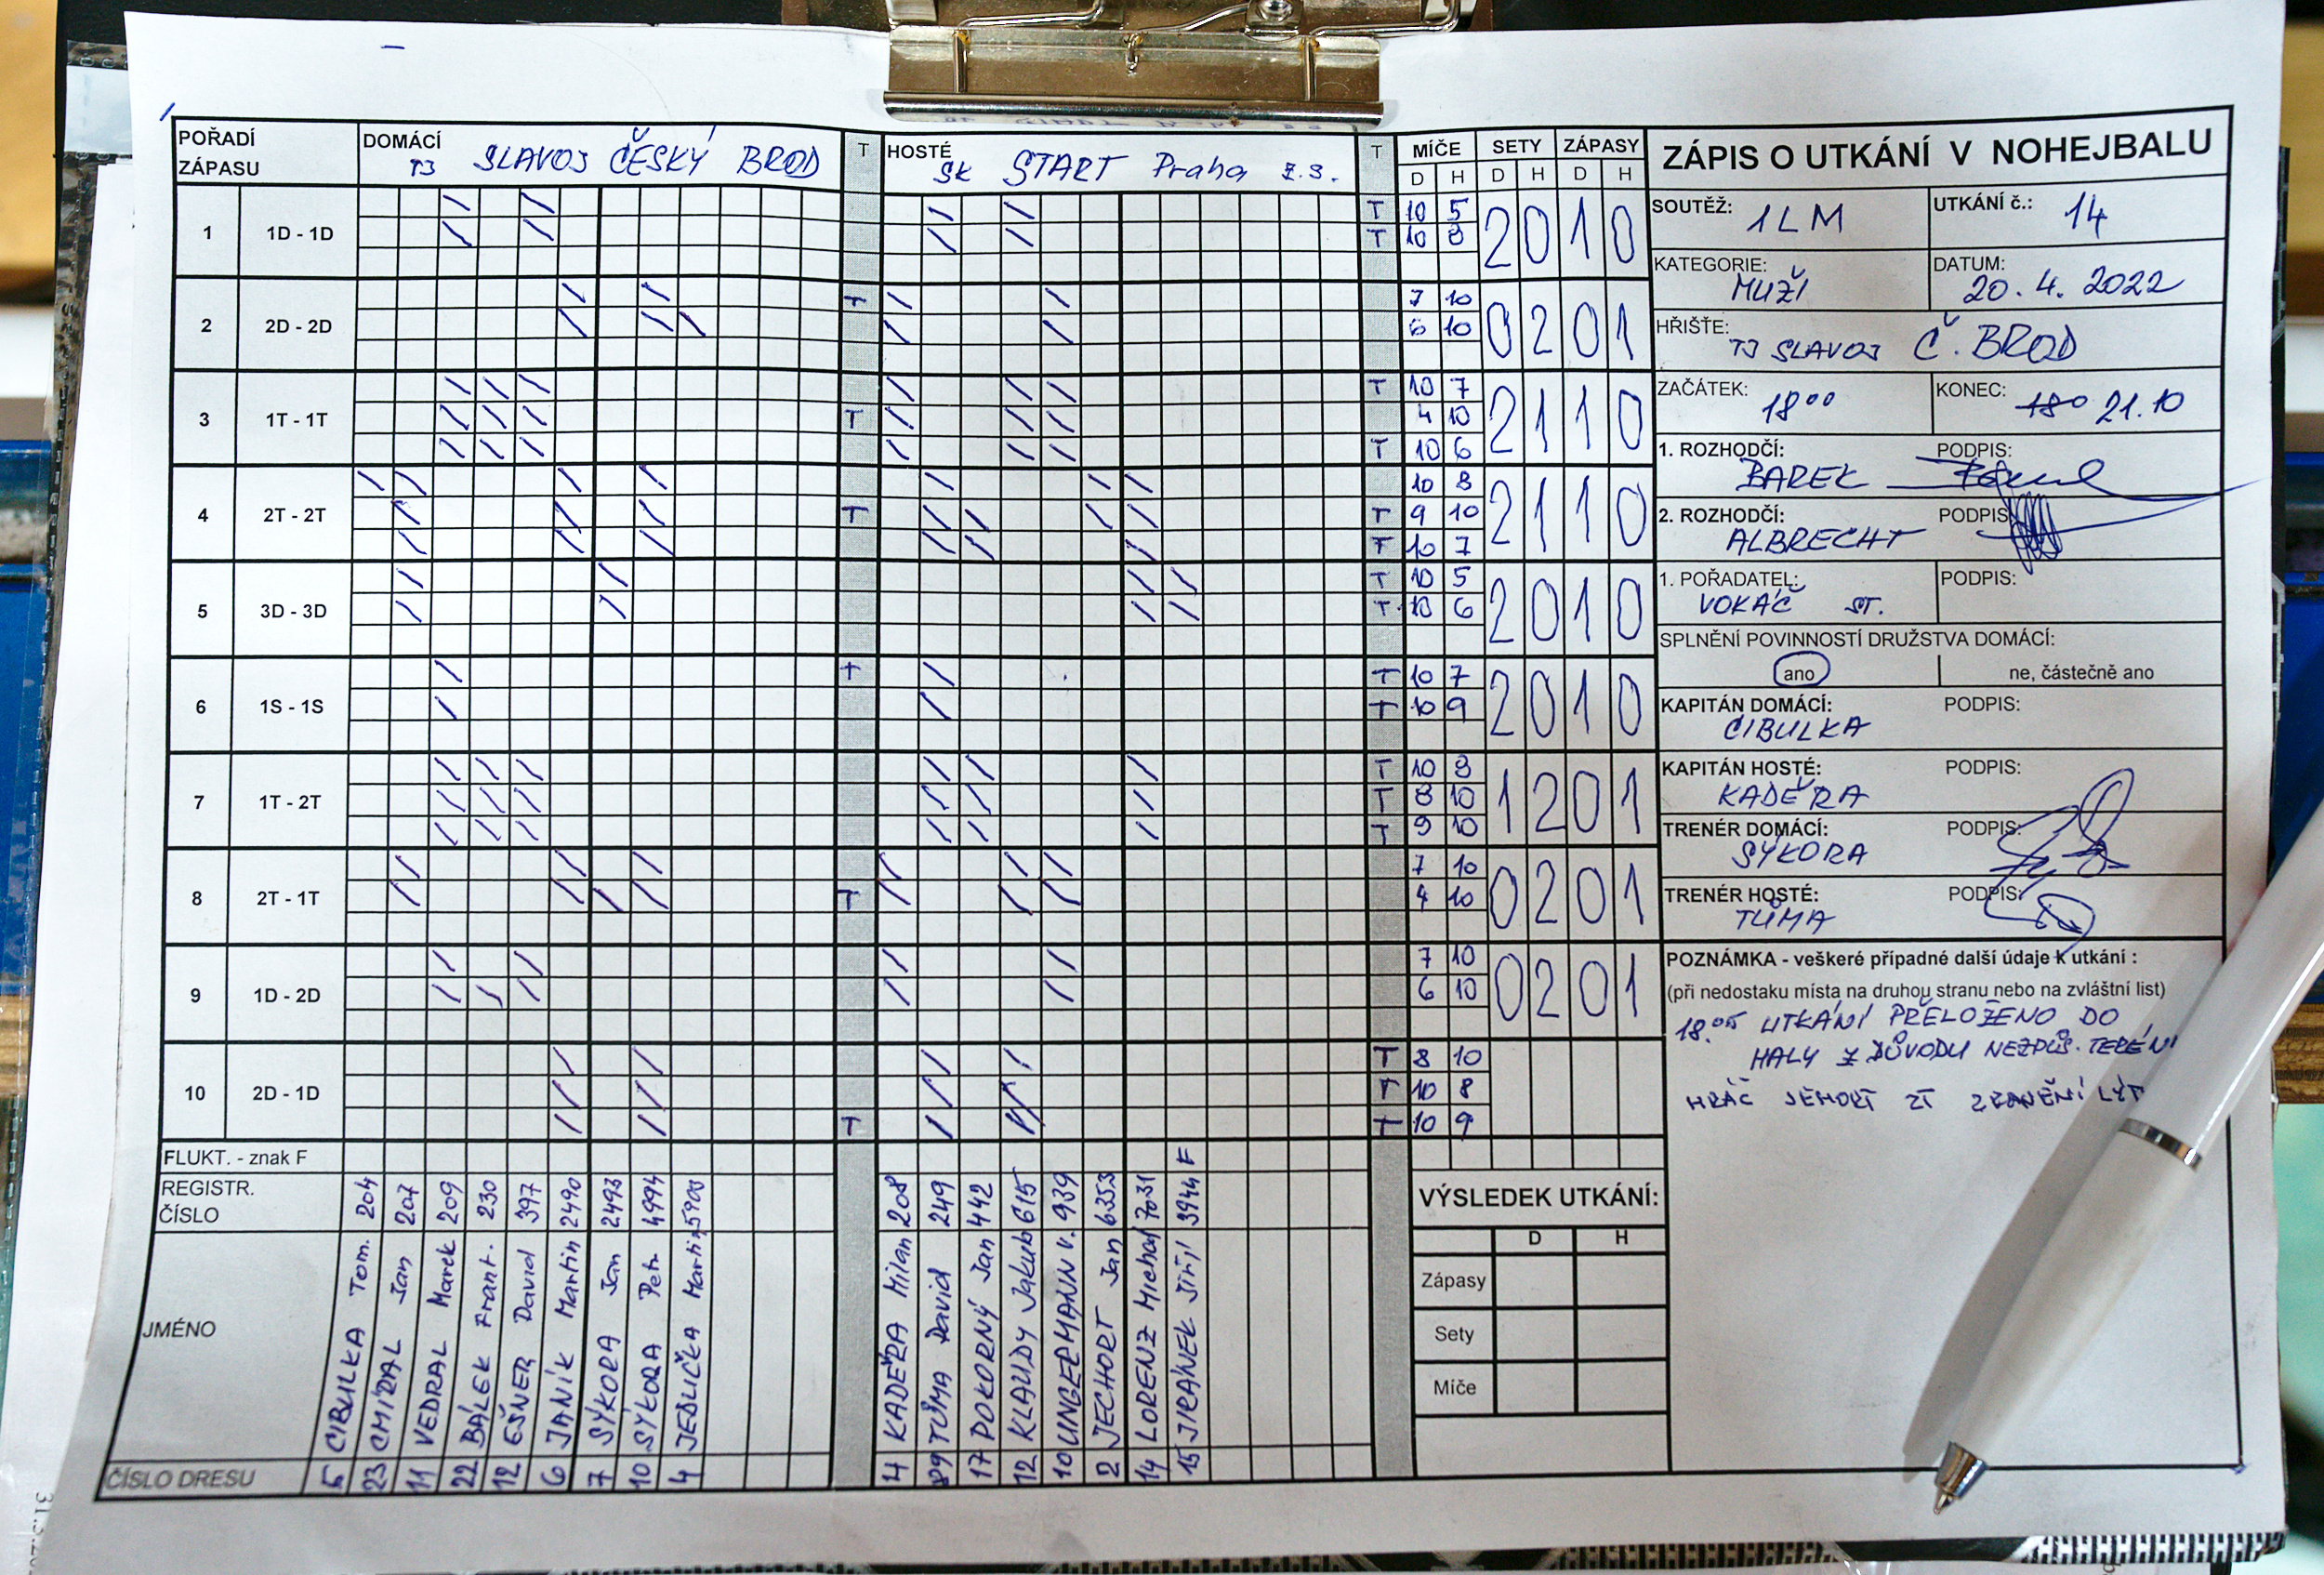 POŘADÍ ZÁPASU
DOMÁCÍ TJ SLAVOJ ČESKÝ BROD
T
HOSTÉ SK START Praha z.s.
T
MÍČE SETY ZÁPASY
D H D H D H
1 1D - 1D T 10 5 2 0 1 0
T 10 8
2 2D - 2D T 7 10 0 2 0 1
6 10
3 1T - 1T T 10 7 2 1 1 0
T 4 10
T 10 6
4 2T - 2T 10 8 2 1 1 0
T T 9 10
T 10 7
5 3D - 3D T 10 5 2 0 1 0
T 10 6
6 1S - 1S T T 10 7 2 0 1 0
T 10 9
7 1T - 2T T 10 8 1 2 0 1
T 8 10
T 9 10
8 2T - 1T 7 10 0 2 0 1
T 4 10
9 1D - 2D 7 10 0 2 0 1
6 10
10 2D - 1D T 8 10
T 10 8
T T 10 9
FLUKT. - znak F F
REGISTR. ČÍSLO 204 207 209 230 397 2490 2493 4994 5903 208 249 442 615 939 6353 7031 3944
JMÉNO
CIBULKA Tom.
CMÍRAL Jan
VEDRAL Marek
BÁLEK Frant.
EŠNER David
JANÍK Martin
SÝKORA Jan
SÝKORA Petr
JEDLIČKA Martin
KADEŘA Milan
TŮMA David
POKORNÝ Jan
KLAUDY Jakub
UNGERMANN V.
JECHORT Jan
LORENZ Michal
JIRÁNEK Jiří
ČÍSLO DRESU 5 23 11 22 12 6 7 10 4 4 89 17 12 10 2 14 15
VÝSLEDEK UTKÁNÍ:
D H
Zápasy
Sety
Míče
ZÁPIS O UTKÁNÍ V NOHEJBALU
SOUTĚŽ: 1LM UTKÁNÍ č.: 14
KATEGORIE: MUŽI DATUM: 20.4.2022
HŘIŠTĚ: TJ SLAVOJ Č. BROD
ZAČÁTEK: 18 00 KONEC: 180 21.10
1. ROZHODČÍ: BAREK PODPIS:
2. ROZHODČÍ: ALBRECHT PODPIS:
1. POŘADATEL: VOKÁČ ST. PODPIS:
SPLNĚNÍ POVINNOSTÍ DRUŽSTVA DOMÁCÍ:
ano ne, částečně ano
KAPITÁN DOMÁCÍ: CIBULKA PODPIS:
KAPITÁN HOSTÉ: KADEŘA PODPIS:
TRENÉR DOMÁCÍ: SÝKORA PODPIS:
TRENÉR HOSTÉ: TŮMA PODPIS:
POZNÁMKA - veškeré případné další údaje k utkání :
(při nedostaku místa na druhou stranu nebo na zvláštní list)
18.05 UTKÁNÍ PŘELOŽENO DO
HALY Z DŮVODU NEZPŮS. TERÉNU
HRÁČ JEHORT ZRANĚNÍ LÝT